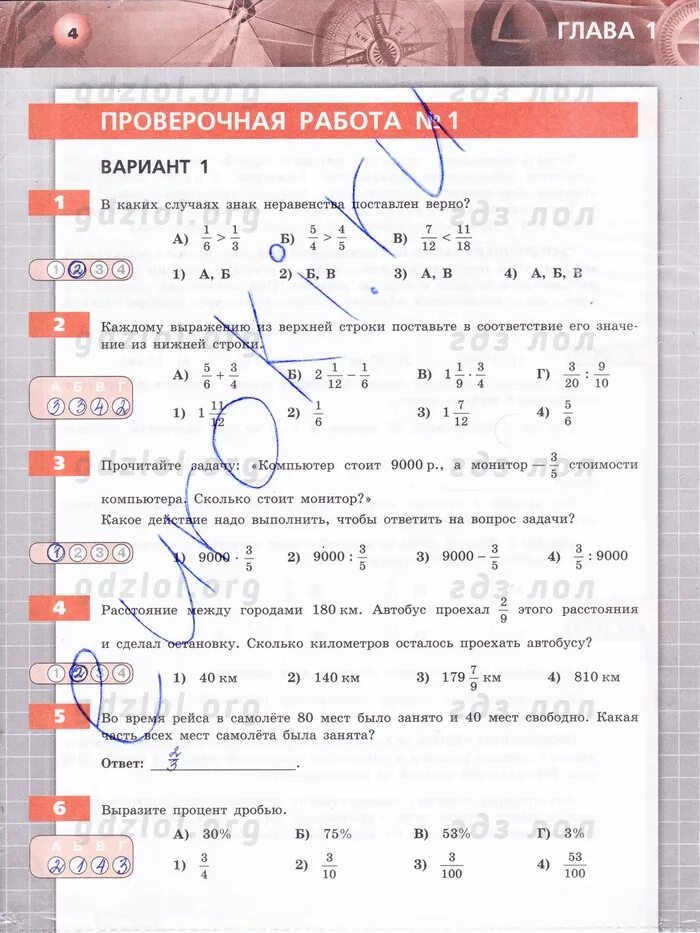 4
ГЛАВА 1
gdzlol.org гдз лол
ПРОВЕРОЧНАЯ РАБОТА № 1
ВАРИАНТ 1
1
В каких случаях знак неравенства поставлен верно?
gdzlol.org гдз лол
А) 1/6 > 1/3 Б) 5/4 > 4/5 В) 7/12 < 11/18
1 2 3 4
1) А, Б 2) Б, В 3) А, В 4) А, Б, В
2
Каждому выражению из верхней строки поставьте в соответствие его значе-
ние из нижней строки.
gdzlol.org гдз лол
А) 5/6 + 3/4 Б) 2 1/12 − 1/6 В) 1 1/9 · 3/4 Г) 3/20 : 9/10
А Б В Г
3 3 4 2
1) 1 11/12 2) 1/6 3) 1 7/12 4) 5/6
3
Прочитайте задачу: «Компьютер стоит 9000 р., а монитор — 3/5 стоимости
gdzlol.org гдз лол
компьютера. Сколько стоит монитор?»
Какое действие надо выполнить, чтобы ответить на вопрос задачи?
1 2 3 4
1) 9000 · 3/5 2) 9000 : 3/5 3) 9000 − 3/5 4) 3/5 : 9000
gdzlol.org гдз лол
4
Расстояние между городами 180 км. Автобус проехал 2/9 этого расстояния
и сделал остановку. Сколько километров осталось проехать автобусу?
1 2 3 4
1) 40 км 2) 140 км 3) 179 7/9 км 4) 810 км
gdzlol.org гдз лол
5
Во время рейса в самолёте 80 мест было занято и 40 мест свободно. Какая
часть всех мест самолёта была занята?
Ответ: 2/3 .
6
Выразите процент дробью.
gdzlol.org гдз лол
А) 30% Б) 75% В) 53% Г) 3%
А Б В Г
2 1 4 3
1) 3/4 2) 3/10 3) 3/100 4) 53/100
euroki.ru